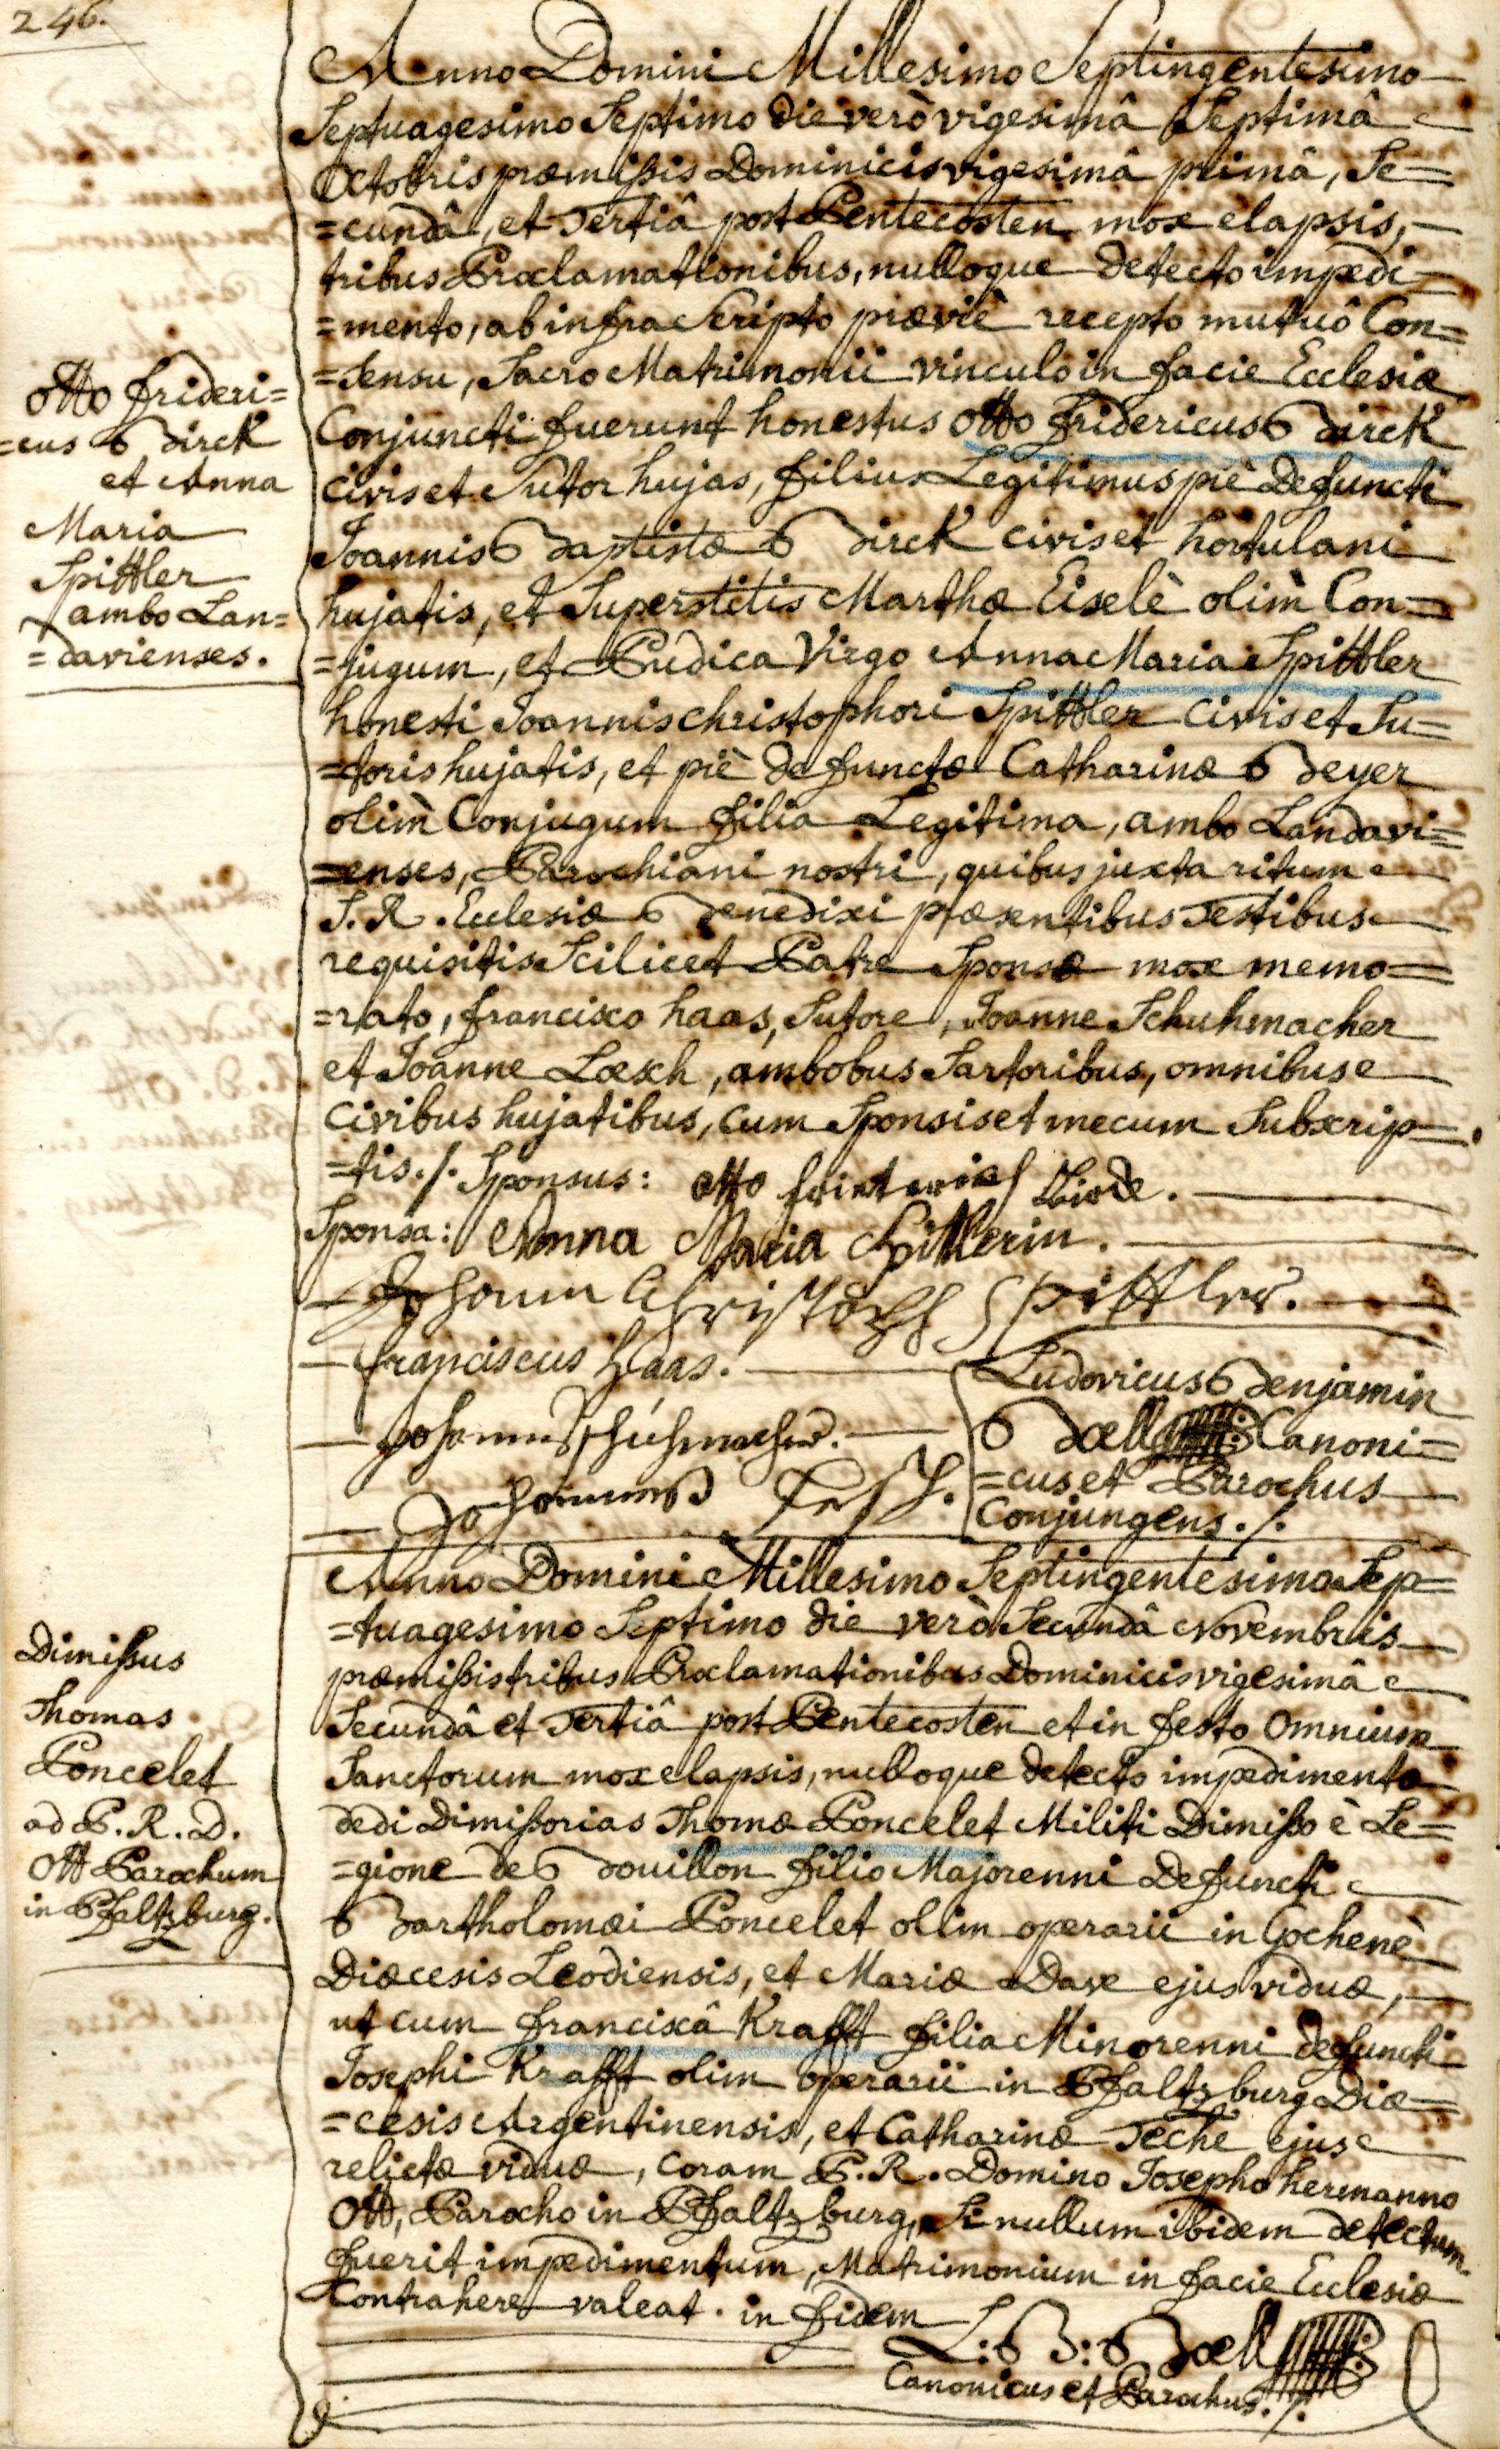 246.
Anno Domini Millesimo Septingentesimo
Septuagesimo Septimo die verò vigesimâ Septimâ
Octobris præmissis Dominicis vigesimâ primâ, Se=
=cundâ, et Tertiâ post Pentecosten mox elapsis,
tribus Proclamationibus, nulloque detecto impedi=
=mento, ab infra Scripto præviè recepto mutuô Con=
=sensu, Sacro Matrimonii vinculo in facie Ecclesiæ
Conjuncti fuerunt honestus Otto fridericus Birck
civis et Sutor hujas, filius Legitimus piè Defuncti
Joannis Baptistæ Birck civis et hortulani
hujatis, et Superstitis Marthæ Eiselè olim Con=
=jugum, et Pudica Virgo Anna Maria Spittler
honesti Joannis christophori Spittler civis et Su=
=toris hujatis, et piè defunctæ Catharinæ Beyer
olim Conjugum filia Legitima, ambo Landavi=
=enses, Parochiani nostri, quibus juxta ritum
S. R. Ecclesiæ Benedixi præsentibus Testibus
requisitis Scilicet Patre Sponsæ mox memo=
=rato, francisco haas, Sutore, Joanne Schuhmacher
et Joanne Loesch, ambobus Sartoribus, omnibus
civibus hujatibus, cum Sponsis et mecum Subscrip=
=tis./. Sponsus: otto Birck.
Sponsa: Anna Maria Spittlerin.
Johann Christoph Spittler.
franciscus haas.
Johannes Schuhmacher.
Johannes Lesch.
Ludovicus Benjamin
Boell Canoni=
=cus et Parochus
Conjungens./.
Otto frideri=
=cus Birck
et Anna
Maria
Spittler
ambo Lan=
=davienses.
Anno Domini Millesimo Septingentesimo Sep=
=tuagesimo Septimo die verò Secundâ Novembris
præmissis tribus Proclamationibus Dominicis vigesimâ
Secundâ et Tertiâ post Pentecosten et in festo Omnium
Sanctorum mox elapsis, nulloque detecto impedimento
dedi Dimissorias Thomæ Poncelet Militi Dimisso è Le=
=gione de Bouillon filio Majorenni Defuncti
Bartholomæi Poncelet olim operarii in Gochenè
Diœcesis Leodiensis, et Mariæ Dave ejus viduæ,
ut cum franciscâ Krafft filia Minorenni defuncti
Josephi Krafft olim operarii in Pfaltzburg Diœ=
=cesis Argentinensis, et Catharinæ Teche ejus
relictæ viduæ, coram P. R. Domino Josepho hermanno
Ott, Parocho in Pfaltzburg, Si nullum ibidem detectum
fuerit impedimentum, Matrimonium in facie Ecclesiæ
Contrahere valeat. in fidem
L: B: Boell
Canonicus et Parochus./.
Dimissus
Thomas
Poncelet
ad P. R. D.
Ott Parochum
in Pfaltzburg.